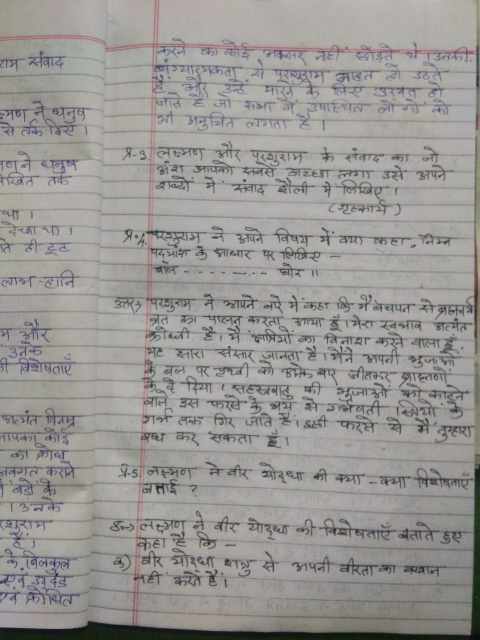 राम संवाद
लक्ष्मण ने धनुष
से तर्क दिए।
था।
लाभ-हानि
और
उनके
विशेषताएँ
अत्यंत विनम्र
कोई
का क्रोध
अवगत कराने
। उनके
परशुराम
हैं।
के बिलकुल
एवं उद्दंड
एवं क्रोधित
करने का कोई अवसर नहीं छोड़ते थे। उनकी
व्यंग्यात्मकता से परशुराम आहत हो उठते
हैं और उन्हें मारने के लिए उद्यत हो
जाते हैं जो सभा में उपस्थित लोगों को
भी अनुचित लगता है।
प्र-3 लक्ष्मण और परशुराम के संवाद का जो
अंश आपको सबसे अच्छा लगा उसे अपने
शब्दों में संवाद शैली में लिखिए।
(गृहकार्य)
प्र-4 परशुराम ने अपने विषय में क्या कहा, निम्न
पद्यांश के आधार पर लिखिए -
बाल - - - - - - - - घोर॥
उत्तर) परशुराम ने अपने बारे में कहा कि मैं बचपन से ब्रह्मचर्य
व्रत का पालन करता आया हूँ। मेरा स्वभाव अत्यंत
क्रोधी है। मैं क्षत्रियों का विनाश करने वाला हूँ,
यह सारा संसार जानता है। मैंने अपनी भुजाओं
के बल पर पृथ्वी को अनेक बार जीतकर ब्राह्मणों
को दे दिया। सहस्रबाहु की भुजाओं को काटने
वाले इस फरसे के भय से गर्भवती स्त्रियों के
गर्भ तक गिर जाते हैं। इसी फरसे से मैं तुम्हारा
वध कर सकता हूँ।
प्र-5 लक्ष्मण ने वीर योद्धा की क्या-क्या विशेषताएँ
बताई?
उत्तर) लक्ष्मण ने वीर योद्धा की विशेषताएँ बताते हुए
कहा है कि -
क) वीर योद्धा शत्रु से अपनी वीरता का बखान
नहीं करते हैं।